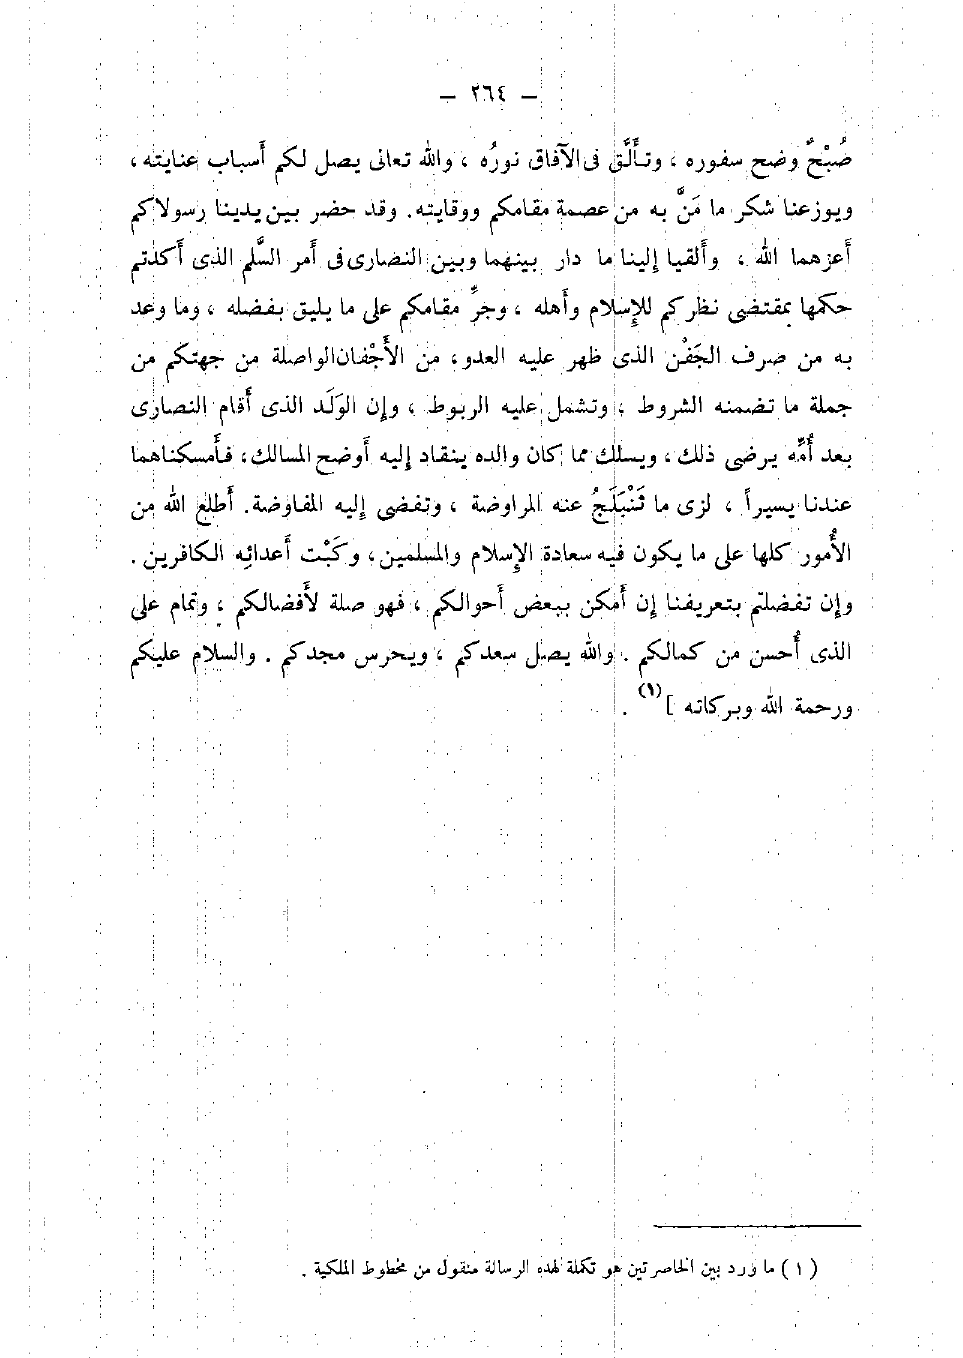 — ٢٦٤ —
صُبْحٌ وضح سفوره ، وتأَلَّق فى الآفاق نورُه ، والله تعالى يصل لكم أَسباب عنايته ،
ويوزعنا شكر ما مَنَّ به من عصمة مقامكم ووقايته. وقد حضر بين يدينا رسولاكم
أَعزهما الله ، وأَلقيا إلينا ما دار بينهما وبين النصارى فى أَمر السَّلم الذى أَكدتم
حكمها بمقتضى نظركم للإسلام وأَهله ، وجرٍّ مقامكم على ما يليق بفضله ، وما وعد
به من صرف الجَفْن الذى ظهر عليه العدو ، من الأَجْفان الواصلة من جهتكم من
جملة ما تضمنه الشروط ، وتشمل عليه الربوط ، وإن الوَلَد الذى أَقام النصارى
بعد أُمِّه يرضى ذلك ، ويسلك مما كان والده ينقاد إليه أَوضح المسالك ، فأَمسكناهما
عندنا يسيراً ، لنرى ما تَنْبَلَجُ عنه المراوضة ، وتفضى إليه المفاوضة. أَطلع الله من
الأُمور كلها على ما يكون فيه سعادة الإسلام والمسلمين ، وكَبْت أَعدائِه الكافرين .
وإن تفضلتم بتعريفنا إن أَمكن ببعض أَحوالكم ، فهو صلة لأَفضالكم ، وتمام على
الذى أُحسن من كمالكم . والله يصل سعدكم ، ويحرس مجدكم . والسلام عليكم
ورحمة الله وبركاته ] (١) .
( ١ ) ما ورد بين الحاصرتين هو تكملة لهذه الرسالة منقول من مخطوط الملكية .